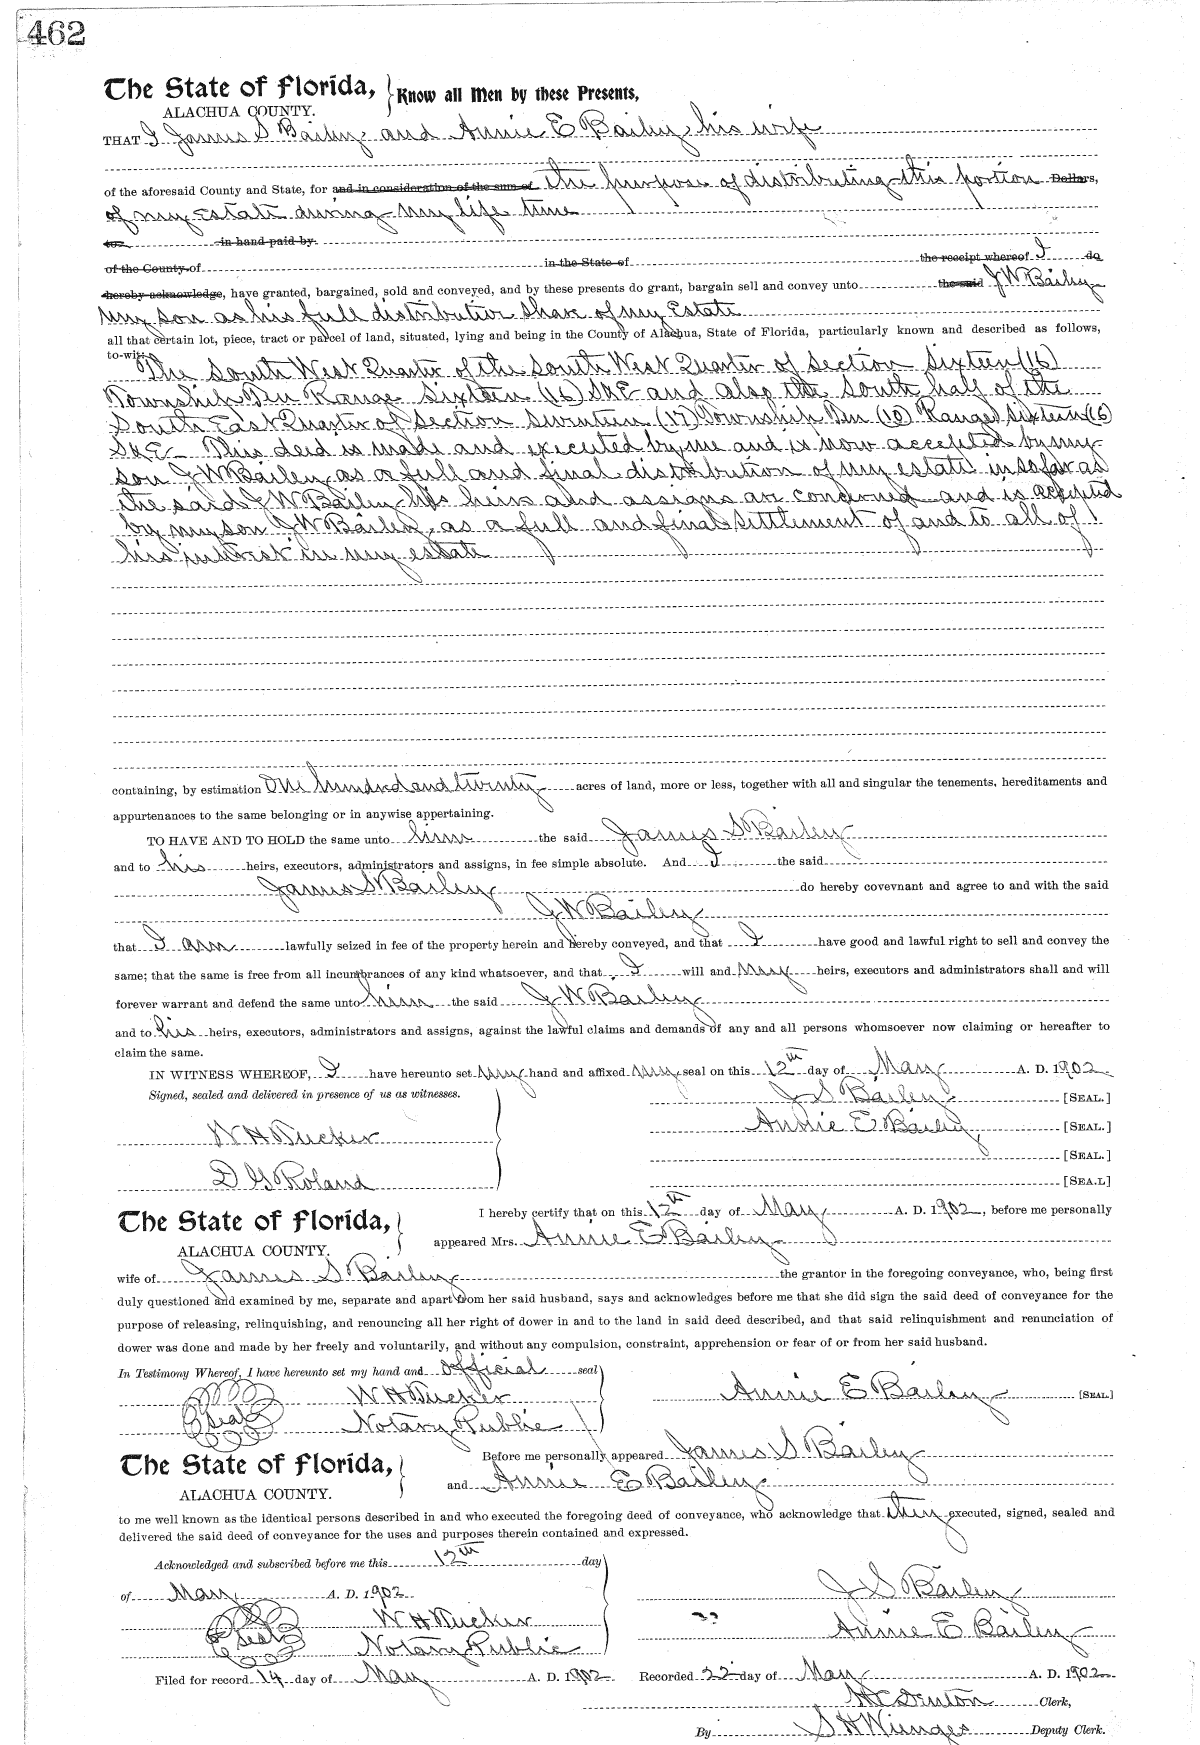 462
The State of Florida, } Know all Men by these Presents,
ALACHUA COUNTY.
THAT I James S Bailey and Annie E Bailey his wife
of the aforesaid County and State, for and in consideration of the sum of the purpose of distributing this portion Dollars,
of my Estate during my life time
to in hand paid by
of the County of in the State of the receipt whereof I do
hereby acknowledge, have granted, bargained, sold and conveyed, and by these presents do grant, bargain sell and convey unto the said J W Bailey
my son as his full distributive share of my Estate
all that certain lot, piece, tract or parcel of land, situated, lying and being in the County of Alachua, State of Florida, particularly known and described as follows,
to-wit:
The South West Quarter of the South West Quarter of Section Sixteen (16)
Township Ten Range Sixteen (16) S & E and also the South half of the
South East Quarter of Section Seventeen (17) Township Ten (10) Range Sixteen (16)
S & E This deed is made and executed by me and is now accepted by my
son J W Bailey as a full and final distribution of my estate in so far as
the said J W Bailey his heirs and assigns are concerned and is accepted
by my son J W Bailey, as a full and final settlement of and to all of
his interest in my estate
containing, by estimation One hundred and twenty acres of land, more or less, together with all and singular the tenements, hereditaments and
appurtenances to the same belonging or in anywise appertaining.
TO HAVE AND TO HOLD the same unto him the said James S Bailey
and to his heirs, executors, administrators and assigns, in fee simple absolute. And I the said
James S Bailey do hereby covevnant and agree to and with the said
J W Bailey
that I am lawfully seized in fee of the property herein and hereby conveyed, and that I have good and lawful right to sell and convey the
same; that the same is free from all incumbrances of any kind whatsoever, and that I will and my heirs, executors and administrators shall and will
forever warrant and defend the same unto him the said J W Bailey
and to his heirs, executors, administrators and assigns, against the lawful claims and demands of any and all persons whomsoever now claiming or hereafter to
claim the same.
IN WITNESS WHEREOF, I have hereunto set my hand and affixed my seal on this 12th day of May A. D. 1902
Signed, sealed and delivered in presence of us as witnesses. J S Bailey [SEAL.]
W H Tucker Annie E Bailey [SEAL.]
[SEAL.]
D G Roland [SEA.L]
The State of Florida, } I hereby certify that on this 12th day of May A. D. 1902, before me personally
ALACHUA COUNTY. appeared Mrs. Annie E Bailey
wife of James S Bailey the grantor in the foregoing conveyance, who, being first
duly questioned and examined by me, separate and apart from her said husband, says and acknowledges before me that she did sign the said deed of conveyance for the
purpose of releasing, relinquishing, and renouncing all her right of dower in and to the land in said deed described, and that said relinquishment and renunciation of
dower was done and made by her freely and voluntarily, and without any compulsion, constraint, apprehension or fear of or from her said husband.
In Testimony Whereof, I have hereunto set my hand and official seal
W H Tucker Annie E Bailey [SEAL.]
Seal Notary Public
The State of Florida, } Before me personally appeared James S Bailey
ALACHUA COUNTY. and Annie E Bailey
to me well known as the identical persons described in and who executed the foregoing deed of conveyance, who acknowledge that they executed, signed, sealed and
delivered the said deed of conveyance for the uses and purposes therein contained and expressed.
Acknowledged and subscribed before me this 12th day
of May A. D. 1902 J S Bailey
Seal W H Tucker Annie E Bailey
Notary Public
Filed for record 14 day of May A. D. 1902 Recorded 22 day of May A. D. 1902
Denton Clerk,
By S H Wienges Deputy Clerk.